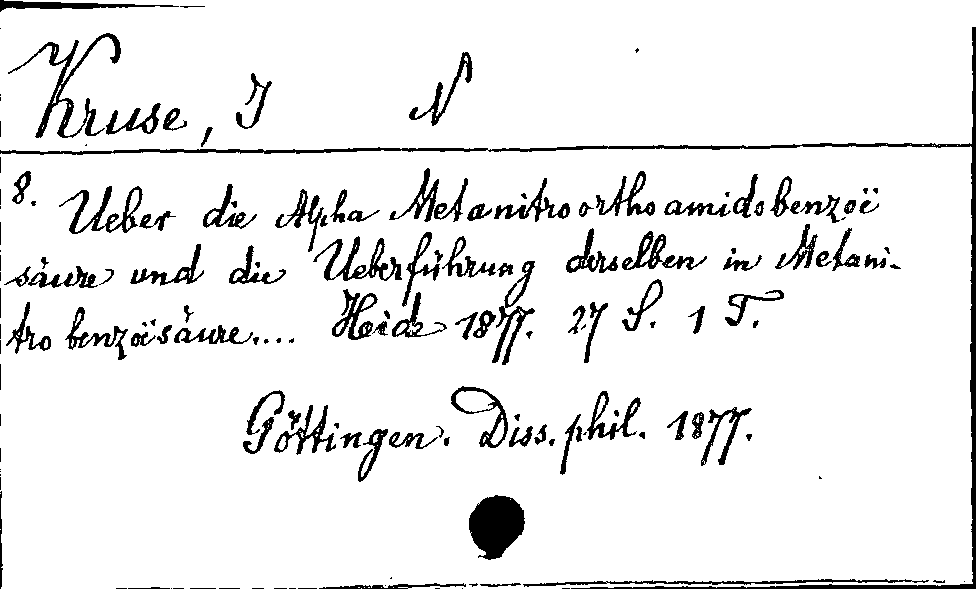 Kruse, J N
8. Ueber die Alpha Metanitroorthoamidobenzoë
säure und die Ueberführung derselben in Metani-
tro benzoësäure.... Heide 1877. 27 S. 1 T.
Göttingen. Diss. phil. 1877.